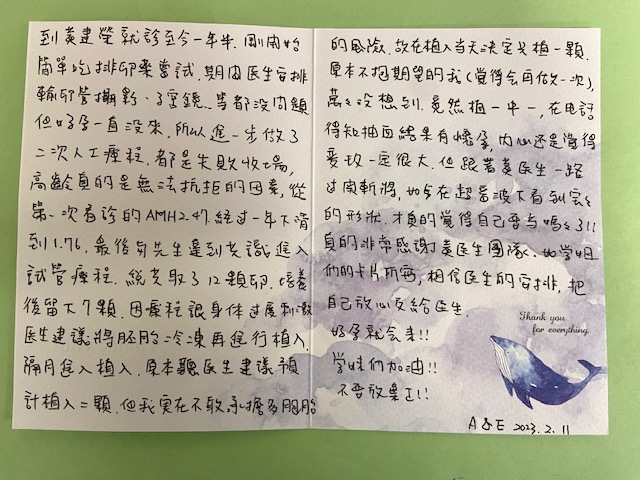 到黃建榮就診至今一年半. 剛開始
簡單吃排卵藥嘗試. 期間医生安排
輸卵管攝影、子宮鏡、等都沒問題
但好孕一直沒來, 所以進一步做了
二次人工療程. 都是失敗收場,
高齡真的是無法抗拒的因素, 從
第一次看診的 AMH 2.47 經过一年下滑
到1.76. 最後与先生達到共識進入
試管療程. 總共取了12顆卵. 培養
後留下7顆. 因療程讓身体过度刺激
医生建議將胚胎冷凍再進行植入.
隔月進入植入. 原本聽医生建議預
計植入二顆. 但我實在不敢承擔多胞胎
的風險. 故在植入当天決定只植一顆.
原本不抱期望的我(覺得会再做一次),
萬萬沒想到. 竟然植一中一, 在电話
得知抽血結果有懷孕, 內心还是覺得
変玫一定很大. 但跟著黃医生一路
过関斬將, 如今在超音波下看到宝宝
的形狀. 才真的覺得自己要当媽媽了!!
真的非常感謝黃医生團隊. 如学姐
們的卡片所寫, 相信医生的安排, 把
自己放心交給医生
好孕就会来!!
学妹们加油!!
不要放棄!!
Thank you
for everything.
A & E 2023. 2. 11